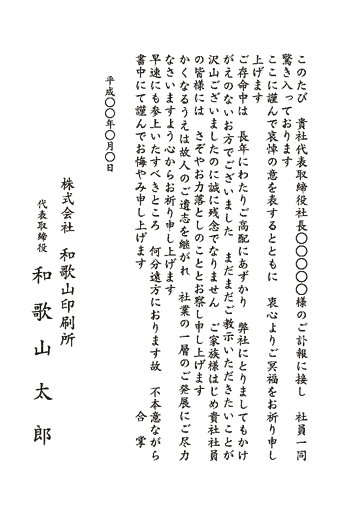 このたび　貴社代表取締役社長〇〇〇〇様のご訃報に接し　社員一同
驚き入っております
ここに謹んで哀悼の意を表するとともに　衷心よりご冥福をお祈り申し
上げます
ご存命中は　長年にわたりご高配にあずかり　弊社にとりましてもかけ
がえのないお方でございました　まだまだご教示いただきたいことが
沢山ございましたのに誠に残念でなりません　ご家族様はじめ貴社社員
の皆様には　さぞやお力落としのこととお察し申し上げます
かくなるうえは故人のご遺志を継がれ　社業の一層のご発展にご尽力
なさいますよう心からお祈り申し上げます
早速にも参上いたすべきところ　何分遠方におります故　不本意ながら
書中にて謹んでお悔やみ申し上げます
合　掌
平成〇〇年〇月〇日
株式会社　和歌山印刷所
代表取締役　和歌山太郎